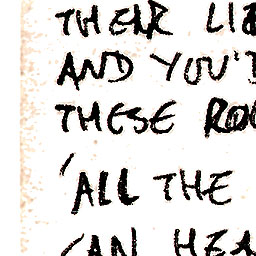 THEIR LI
AND YOU'D
THESE RO
'ALL THE
CAN HEA